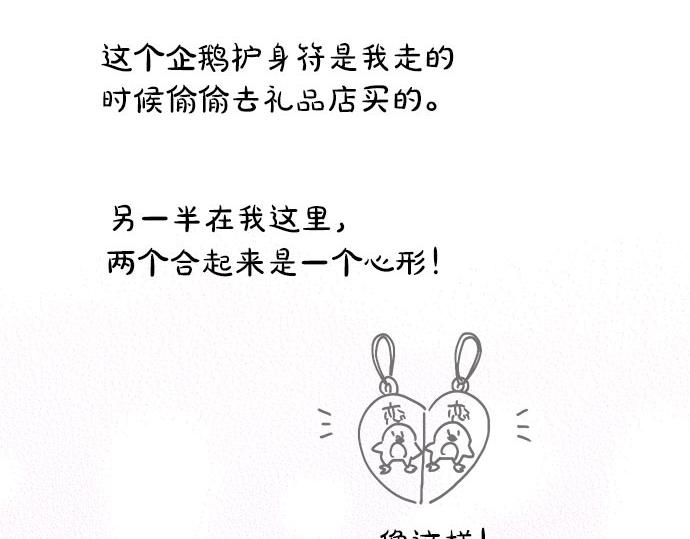 这个企鹅护身符是我走的
时候偷偷去礼品店买的。
另一半在我这里，
两个合起来是一个心形！
恋 恋
像这样！